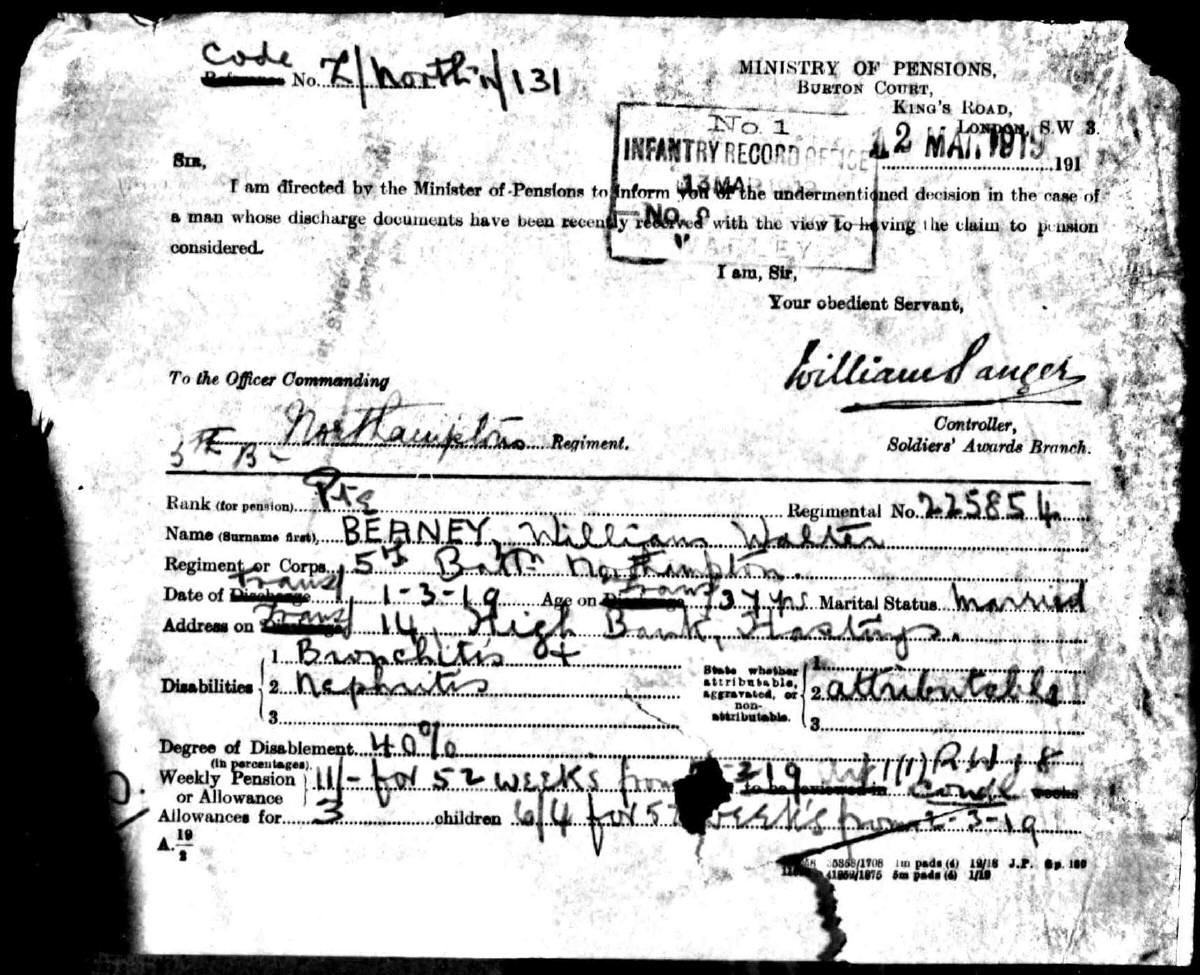 Code
No. Z/North'n/131
MINISTRY OF PENSIONS,
BURTON COURT,
KING'S ROAD,
LONDON, S.W 3.
12 MAR 1919 191
No. 1
INFANTRY RECORD OFFICE
13 MAR
SIR,
I am directed by the Minister of Pensions to inform you of the undermentioned decision in the case of
a man whose discharge documents have been recently received with the view to having the claim to pension
considered.
I am, Sir,
Your obedient Servant,
William Sanger
To the Officer Commanding
Controller,
Soldiers' Awards Branch.
5th Bn Northamptons Regiment.
Rank (for pension) Pte Regimental No. 225854
Name (Surname first) BEANEY, William Walter
Regiment or Corps 5th Battn Northampton.
Date of Discharge transf 1-3-19 Age on transf 37 yrs Marital Status Married
Address on transf 14, High Bank, Hastings.
Disabilities 1. Bronchitis +
2. Nephritis
3.
State whether attributable, aggravated, or non-attributable.
1.
2. attributable
3.
Degree of Disablement 40%
(in percentages).
Weekly Pension or Allowance 11/- for 52 weeks from 3 19 1(1) R.W. to be reviewed in Condl weeks
Allowances for 3 children 6/4 for 52 weeks from 2-3-19
A. 19/2
35858/1708 1m pads (4) 12/18 J.P. Gp. 160
5m pads (6) 1/19